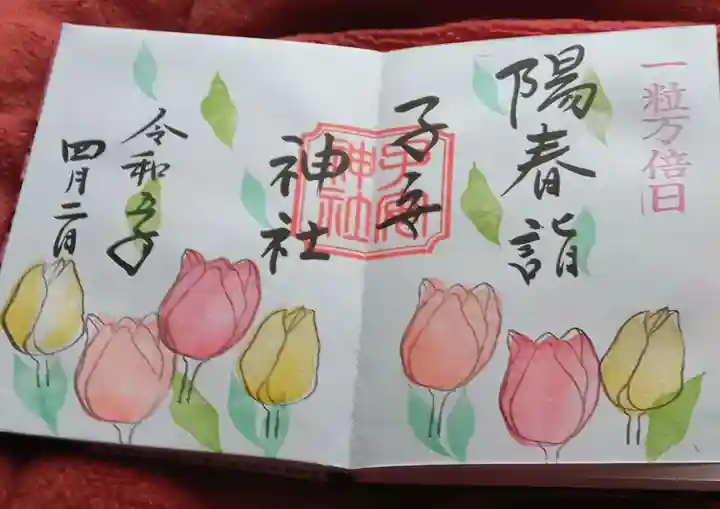 一粒万倍日
陽春詣
子安
神社
子安神社
令和
四月二日